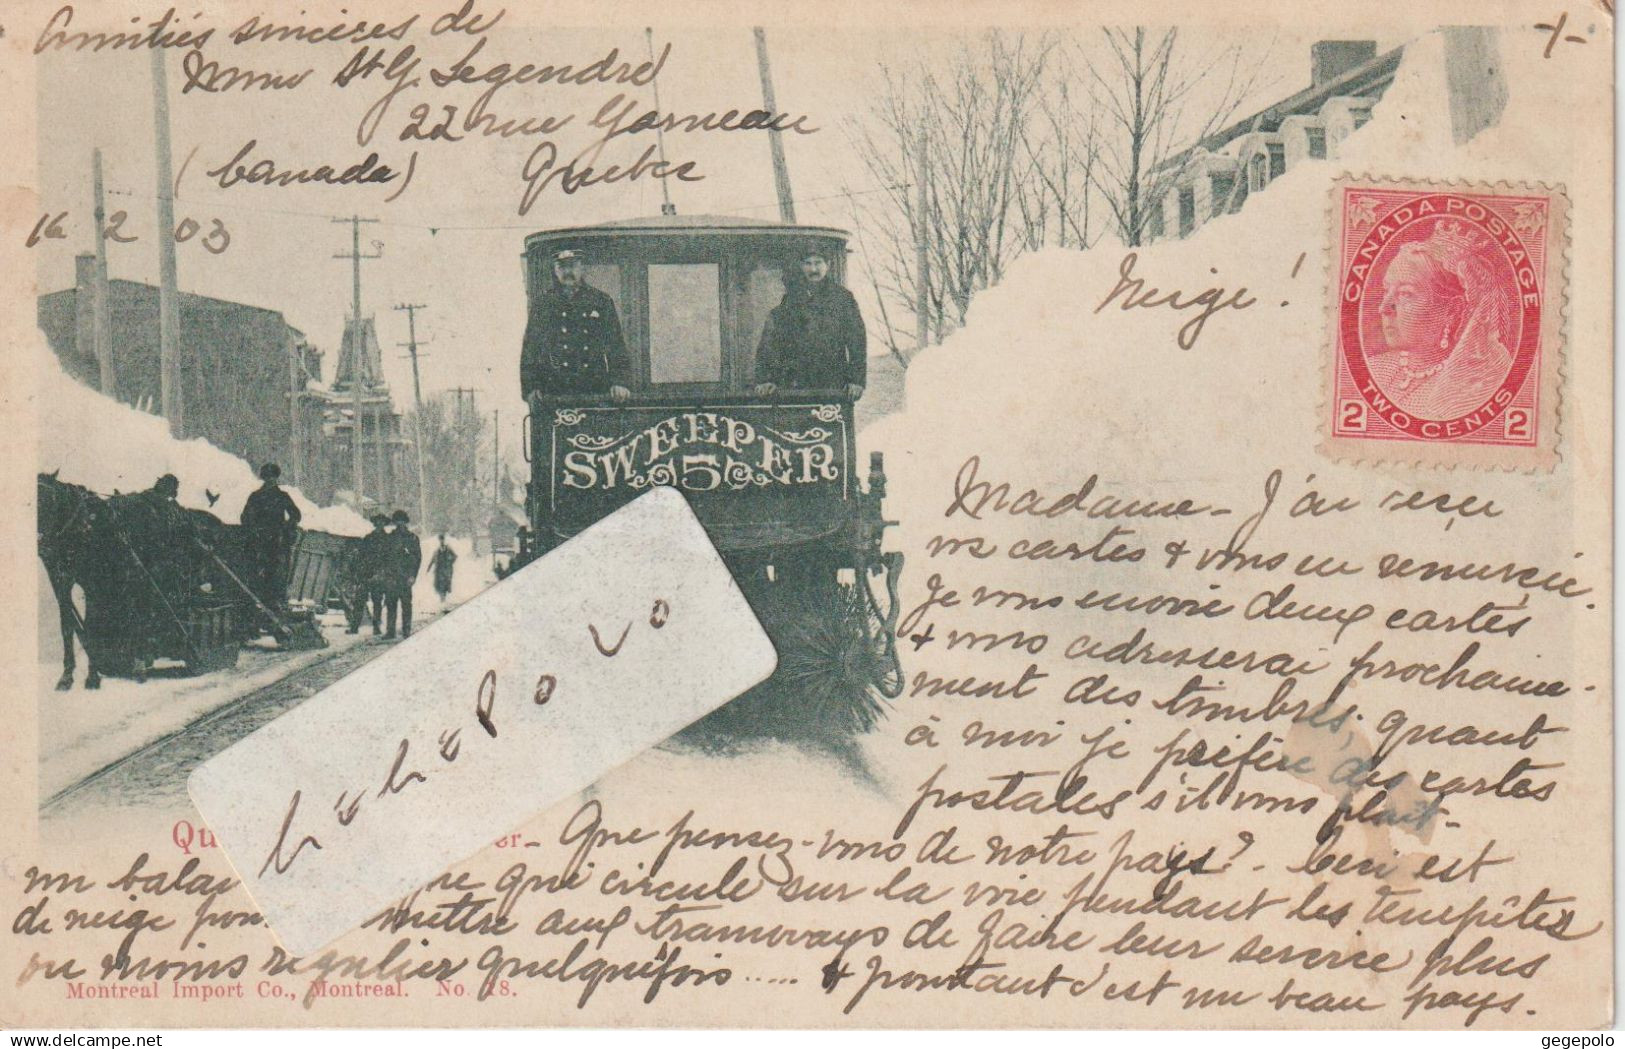 Amitiés sincères de
Mme St G. Legendre
22 rue Garneau
(Canada) Quebec
16 2 03
Neige !
CANADA POSTAGE
TWO CENTS
2 2
SWEEPER
5
Madame - J'ai reçu
vos cartes & vous en remercie.
Je vous envoie deux cartes
& vous adresserai prochaine-
ment des timbres; quant
à moi je préfère des cartes
postales s'il vous plait -
Qu er - Que pensez-vous de notre pays ? - Ceci est
un balai que qui circule sur la voie pendant les tempêtes
de neige pour mettre aux tramways de faire leur service plus
ou moins régulier quelquefois ..... & pourtant c'est un beau pays.
Montreal Import Co., Montreal. No. 18.
gegepolo
delcampe.net
gegepolo